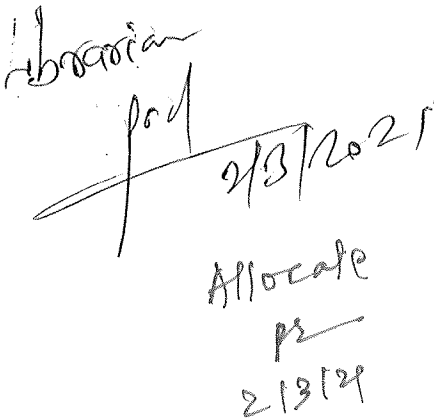 Librarian
2/3/2021
Allocate
2/3/21